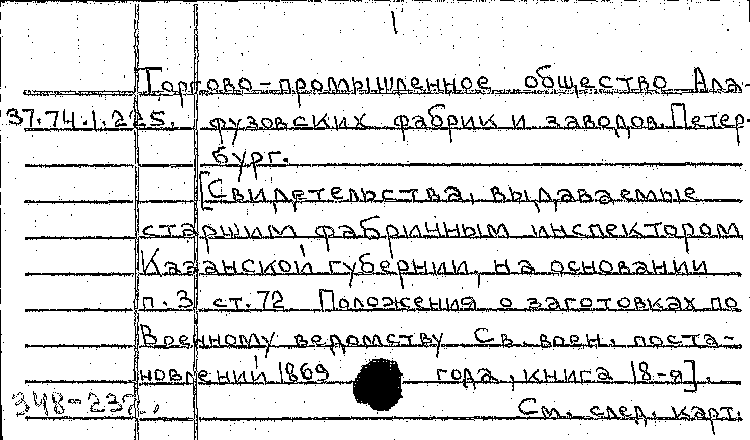 1
Торгово-промышленное общество Ала-
37.74.1.225. фузовских фабрик и заводов. Петер-
бург.
[Свидетельства, выдаваемые
старшим фабричным инспектором
Казанской губернии, на основании
п. 3 ст. 72 Положения о заготовках по
Военному ведомству Св. воен. поста-
новлений 1869 года, книга 18-я].
348-232, См. след. карт.